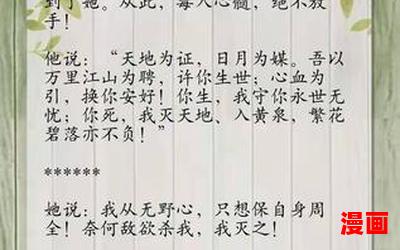 到了她。从此，每入心髓，绝不放
手！
他说：“天地为证，日月为媒。吾以
万里江山为聘，许你生世；心血为
引，换你安好！你生，我守你永世无
忧；你死，我灭天地、入黄泉，繁花
碧落亦不负！”
******
她说：我从无野心，只想保自身周
全！奈何敌欲杀我，我灭之！
漫画